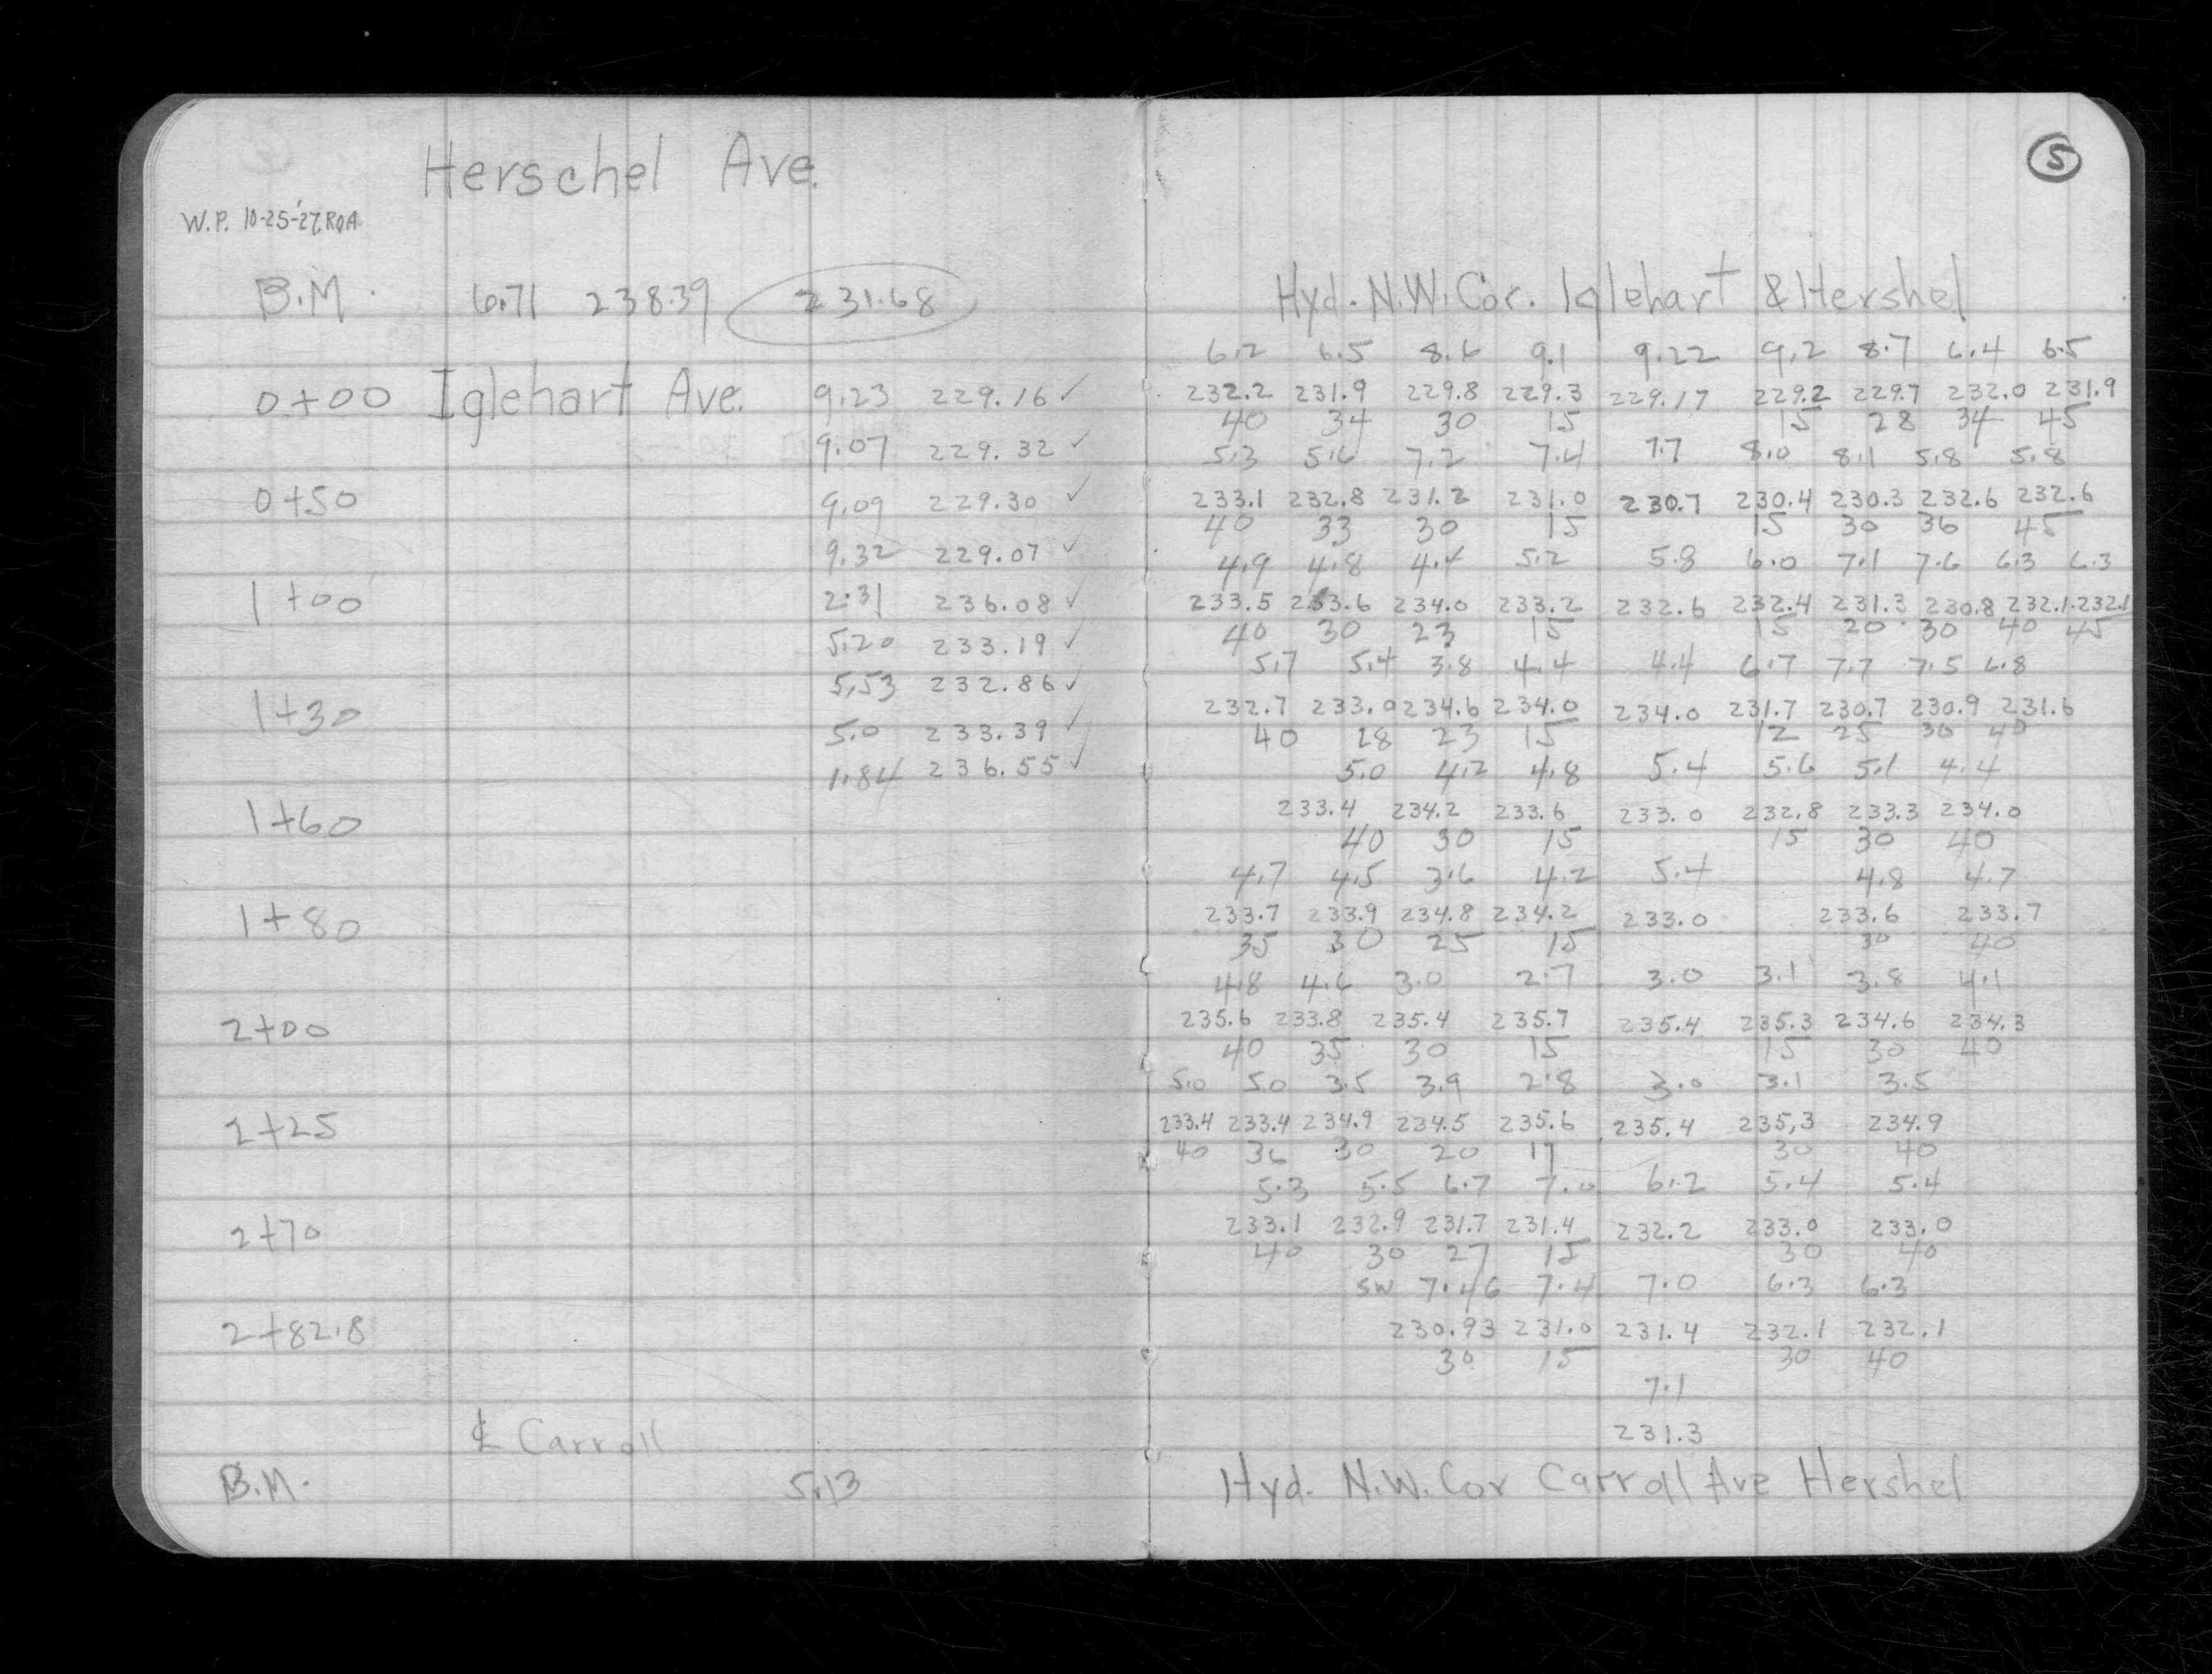 Herschel Ave.
W.P. 10-25-'27. ROA.
B.M. 6.71 238.39 231.68
0+00 Iglehart Ave. 9.23 229.16 ✓
9.07 229.32 ✓
0+50 9.09 229.30 ✓
9.32 229.07 ✓
1+00 2.31 236.08 ✓
5.20 233.19 ✓
5.53 232.86 ✓
1+30 5.0 233.39 ✓
1.84 236.55 ✓
1+60
1+80
2+00
2+25
2+70
2+82.8
℄ Carroll
B.M. 5.13
5
Hyd. N.W. Cor. Iglehart & Hershel
6.2 6.5 8.6 9.1 9.22 9.2 8.7 6.4 6.5
232.2 231.9 229.8 229.3 229.17 229.2 229.7 232.0 231.9
40 34 30 15 15 28 34 45
5.3 5.6 7.2 7.4 7.7 8.0 8.1 5.8 5.8
233.1 232.8 231.2 231.0 230.7 230.4 230.3 232.6 232.6
40 33 30 15 15 30 36 45
4.9 4.8 4.4 5.2 5.8 6.0 7.1 7.6 6.3 6.3
233.5 233.6 234.0 233.2 232.6 232.4 231.3 230.8 232.1 232.1
40 30 23 15 15 20 30 40 45
5.7 5.4 3.8 4.4 4.4 6.7 7.7 7.5 6.8
232.7 233.0 234.6 234.0 234.0 231.7 230.7 230.9 231.6
40 28 23 15 12 25 30 40
5.0 4.2 4.8 5.4 5.6 5.1 4.4
233.4 234.2 233.6 233.0 232.8 233.3 234.0
40 30 15 15 30 40
4.7 4.5 3.6 4.2 5.4 4.8 4.7
233.7 233.9 234.8 234.2 233.0 233.6 233.7
35 30 25 15 30 40
4.8 4.6 3.0 2.7 3.0 3.1 3.8 4.1
235.6 233.8 235.4 235.7 235.4 235.3 234.6 234.3
40 35 30 15 15 30 40
5.0 5.0 3.5 3.9 2.8 3.0 3.1 3.5
233.4 233.4 234.9 234.5 235.6 235.4 235.3 234.9
40 36 30 20 17 30 40
5.3 5.5 6.7 7.0 6.2 5.4 5.4
233.1 232.9 231.7 231.4 232.2 233.0 233.0
40 30 27 15 30 40
SW 7.46 7.4 7.0 6.3 6.3
230.93 231.0 231.4 232.1 232.1
30 15 30 40
7.1
231.3
Hyd. N.W. Cor Carroll Ave Hershel